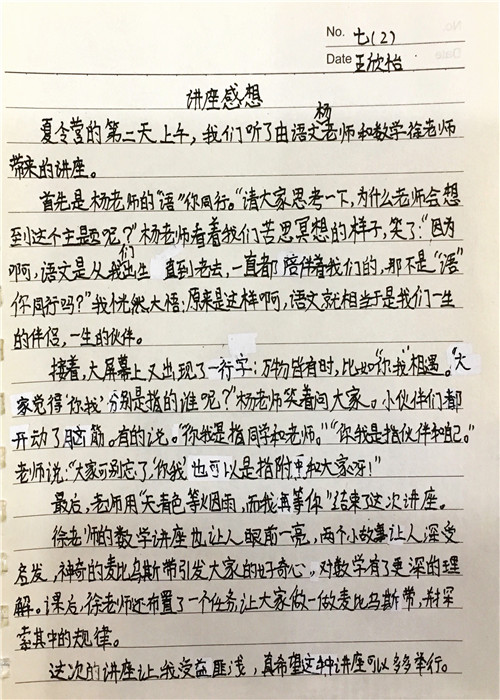 No. 七(2)
Date 王欣怡
讲座感想
夏令营的第二天上午,我们听了由语文杨老师和数学徐老师
带来的讲座。
首先是杨老师的“语”你同行。“请大家思考一下,为什么老师会想
到这个主题呢?”杨老师看着我们苦思冥想的样子,笑了:“因为
啊,语文是从我们出生一直到老去,一直都陪伴着我们的,那不是“语”
你同行吗?”我恍然大悟:原来是这样啊,语文就相当于是我们一生
的伴侣,一生的伙伴。
接着,大屏幕上又出现了一行字:万物皆有时,比如“你我”相遇。“大
家觉得‘你我’分别是指的谁呢?”杨老师笑着问大家。小伙伴们都
开动了脑筋。有的说。“你我是指同学和老师。”“你我是指伙伴和自己。”
老师说:“大家可别忘了,‘你我’也可以是指附中和大家呀!”
最后,老师用“天青色等烟雨,而我再等你”结束了这次讲座。
徐老师的数学讲座也让人眼前一亮,两个小故事让人深受
启发,神奇的麦比乌斯带引发大家的好奇心,对数学有了更深的理
解。课后,徐老师还布置了一个任务,让大家做一做麦比乌斯带,并探
索其中的规律。
这次的讲座让我受益匪浅,真希望这种讲座可以多多举行。